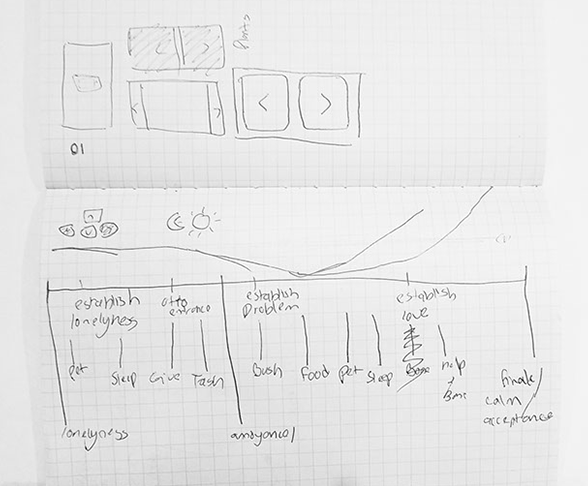 Plants
01
establish
lonelyness
otto
entrance
establish
problem
establish
love
pet
sleep
Give
Trash
Bush
food
pet
sleep
help
+
lonelyness
finale/
calm
acceptance